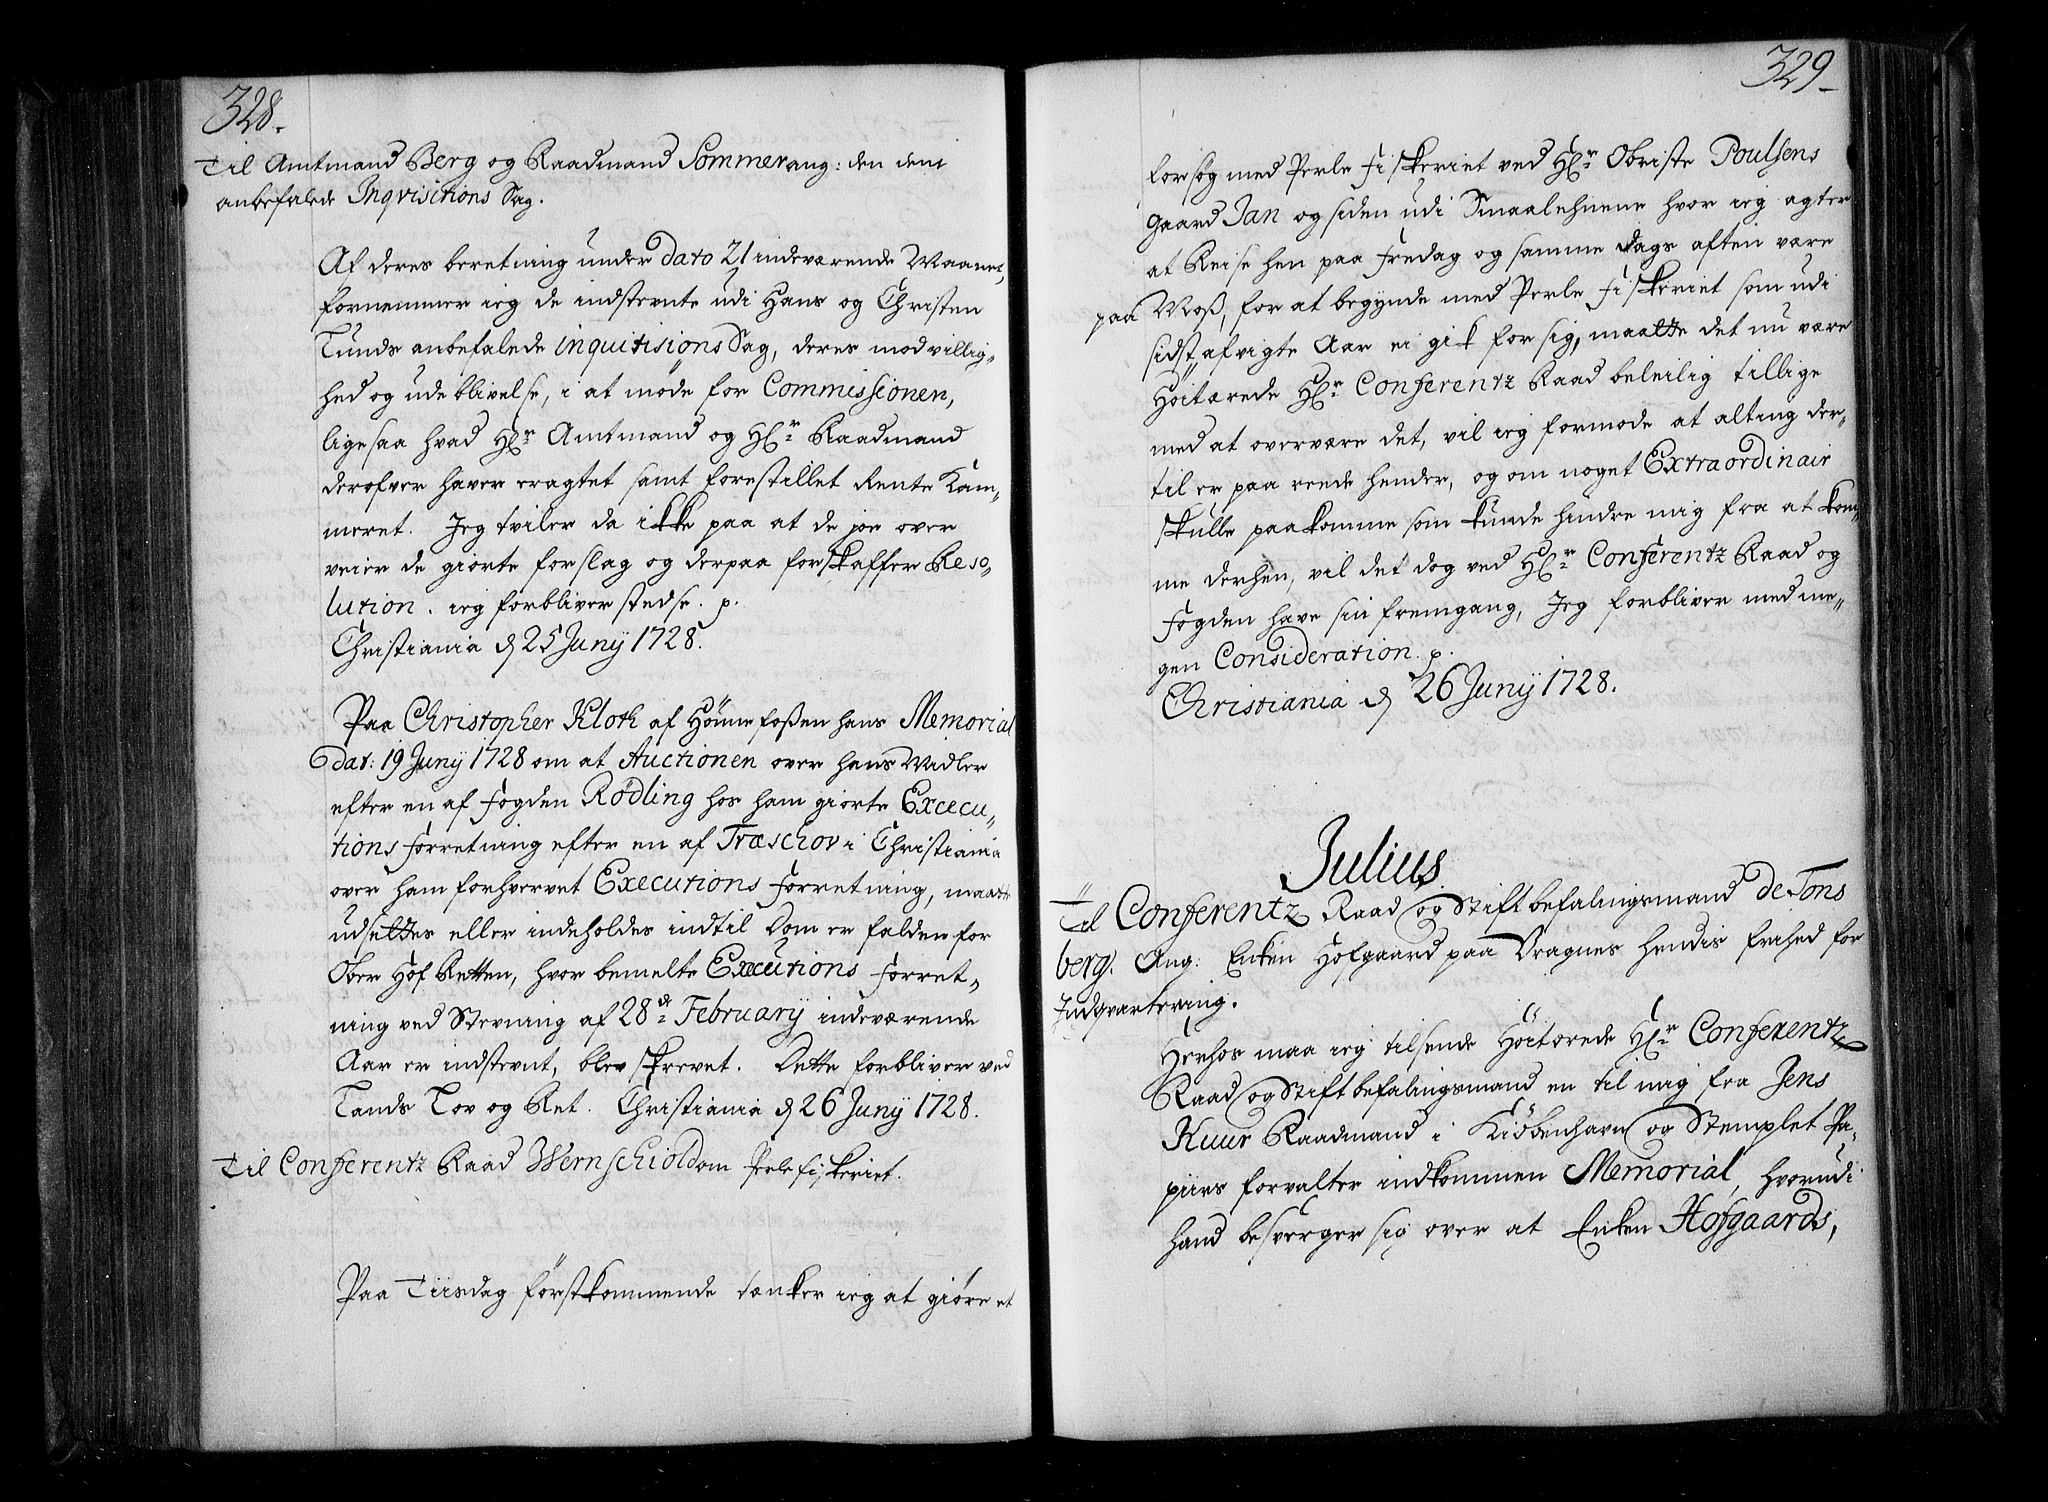 328.
Til Amtmand Berg og Raadmand Sommer ang: den dem
anbefalede Inqvisitions Sag.
Af deres beretning under dato 21 indeværende Maanet,
fornemmer ieg de indstevnte udi Hans og Christen
Lunds anbefalede inquitisions Sag, deres modvillig„
hed og udeblivelse, i at møde for Commissionen,
ligesaa hvad Hr. Amtmand og Hr. Raadmand
derofver haver eragtet samt forestillet Rente Kam„
meret. Jeg tviler da ikke paa at de joe over
veier de giorte forslag og derpaa forskaffer Reso„
lution. ieg forbliver stedse. p.
Christiania d 25 Junij 1728.
Paa Christopher Kloth af Hønnefoßen hans Memorial
dat: 19 Junij 1728 om at Auctionen over hans Midler
efter en af Fogden Rødling hos ham giorte Excecu„
tions Forretning efter en af Træschov i Christiania
over ham forhvervet Executions Forretning, maatte
udsettes eller indeholdes indtil Dom er falden for
Ober Hof Retten, hvor bemelte Executions Forret„
ning ved Stevning af 28de February indeværende
Aar er indstevnt, blev skrevet. Dette forbliver ved
Lands Lov og Ret. Christiania d 26 Junij 1728.
Til Conferentz Raad Wernschiold om Perle fiskeriet.
Paa Tiisdag førstkommende tænker ieg at giøre et
329
forsøg med Perle Fiskeriet ved Hr. Obriste Poulsens
Gaard Jan og siden udi Smaalehnene hvor ieg agter
at Reise hen paa Fredag og samme dags aften være
paa Moß, for at begynde med Perle Fiskeriet som udi
sidst afvigte Aar ei gik for sig, maatte det nu være
Høitærede Hr. Conferentz Raad beleilig tillige
med at overvære det, vil ieg formode at alting der„
til er paa reede hender, og om noget Extraordinair
skulle paakomme som kunde hindre mig fra at kom„
me derhen, vil det dog ved Hr. Conferentz Raad og
Fogden have sin fremgang, Jeg forbliver med me„
gen Consideration. p.
Christiania d 26 Junij 1728.
Julius
Til Conferentz Raad og Stiftbefalingsmand de Tons
berg. Ang: Enken Hofgaard paa Dragnes hendis frihed for
Indqvartering.
Herhos maa ieg tilsende Høitærede Hr. Conferentz
Raad og Stiftbefalingsmand en til mig fra Jens
Kuur Raadmand i Kiøbenhavn og Stemplet Pa„
piirs forvalter indkommen Memorial, hvorudi
hand besverger sig over at Enken Hofgaards,